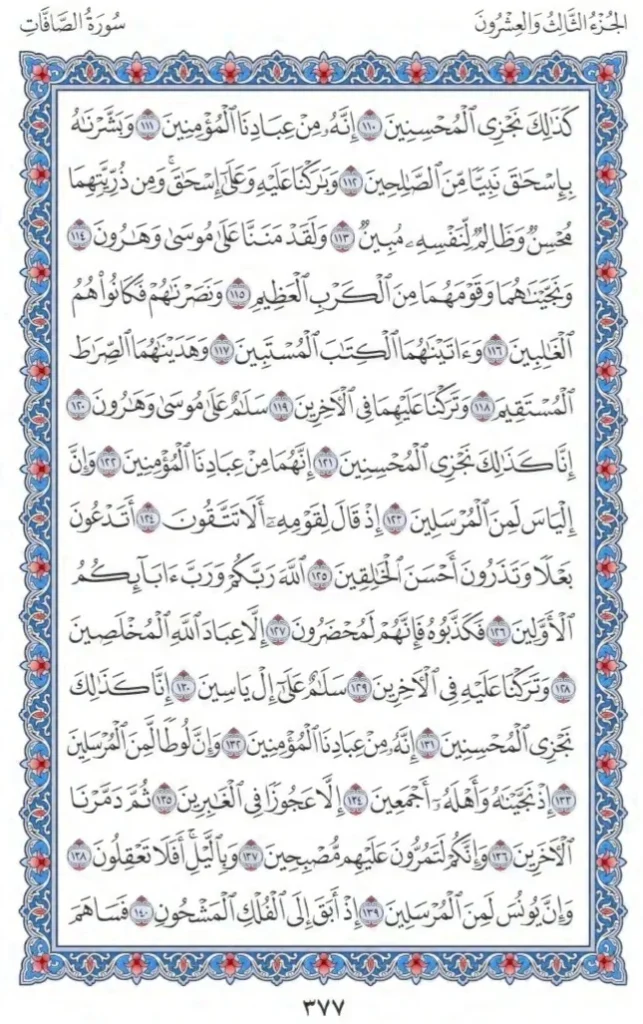 الجُزْءُ الثَّالِثُ وَالعِشْرُونَ
سُورَةُ الصَّافَّاتِ
كَذَٰلِكَ نَجْزِي ٱلْمُحْسِنِينَ ١١٠ إِنَّهُۥ مِنْ عِبَادِنَا ٱلْمُؤْمِنِينَ ١١١ وَبَشَّرْنَٰهُ
بِإِسْحَٰقَ نَبِيًّا مِّنَ ٱلصَّٰلِحِينَ ١١٢ وَبَٰرَكْنَا عَلَيْهِ وَعَلَىٰٓ إِسْحَٰقَۚ وَمِن ذُرِّيَّتِهِمَا
مُحْسِنٌ وَظَالِمٌ لِّنَفْسِهِۦ مُبِينٌ ١١٣ وَلَقَدْ مَنَنَّا عَلَىٰ مُوسَىٰ وَهَٰرُونَ ١١٤
وَنَجَّيْنَٰهُمَا وَقَوْمَهُمَا مِنَ ٱلْكَرْبِ ٱلْعَظِيمِ ١١٥ وَنَصَرْنَٰهُمْ فَكَانُوا۟ هُمُ
ٱلْغَٰلِبِينَ ١١٦ وَءَاتَيْنَٰهُمَا ٱلْكِتَٰبَ ٱلْمُسْتَبِينَ ١١٧ وَهَدَيْنَٰهُمَا ٱلصِّرَٰطَ
ٱلْمُسْتَقِيمَ ١١٨ وَتَرَكْنَا عَلَيْهِمَا فِي ٱلْءَاخِرِينَ ١١٩ سَلَٰمٌ عَلَىٰ مُوسَىٰ وَهَٰرُونَ ١٢٠
إِنَّا كَذَٰلِكَ نَجْزِي ٱلْمُحْسِنِينَ ١٢١ إِنَّهُمَا مِنْ عِبَادِنَا ٱلْمُؤْمِنِينَ ١٢٢ وَإِنَّ
إِلْيَاسَ لَمِنَ ٱلْمُرْسَلِينَ ١٢٣ إِذْ قَالَ لِقَوْمِهِۦٓ أَلَا تَتَّقُونَ ١٢٤ أَتَدْعُونَ
بَعْلًا وَتَذَرُونَ أَحْسَنَ ٱلْخَٰلِقِينَ ١٢٥ ٱللَّهَ رَبَّكُمْ وَرَبَّ ءَابَآئِكُمُ
ٱلْأَوَّلِينَ ١٢٦ فَكَذَّبُوهُ فَإِنَّهُمْ لَمُحْضَرُونَ ١٢٧ إِلَّا عِبَادَ ٱللَّهِ ٱلْمُخْلَصِينَ
١٢٨ وَتَرَكْنَا عَلَيْهِ فِي ٱلْءَاخِرِينَ ١٢٩ سَلَٰمٌ عَلَىٰٓ إِلْ يَاسِينَ ١٣٠ إِنَّا كَذَٰلِكَ
نَجْزِي ٱلْمُحْسِنِينَ ١٣١ إِنَّهُۥ مِنْ عِبَادِنَا ٱلْمُؤْمِنِينَ ١٣٢ وَإِنَّ لُوطًا لَّمِنَ ٱلْمُرْسَلِينَ
١٣٣ إِذْ نَجَّيْنَٰهُ وَأَهْلَهُۥٓ أَجْمَعِينَ ١٣٤ إِلَّا عَجُوزًا فِي ٱلْغَٰبِرِينَ ١٣٥ ثُمَّ دَمَّرْنَا
ٱلْءَاخَرِينَ ١٣٦ وَإِنَّكُمْ لَتَمُرُّونَ عَلَيْهِم مُّصْبِحِينَ ١٣٧ وَبِٱلَّيْلِۚ أَفَلَا تَعْقِلُونَ ١٣٨
وَإِنَّ يُونُسَ لَمِنَ ٱلْمُرْسَلِينَ ١٣٩ إِذْ أَبَقَ إِلَى ٱلْفُلْكِ ٱلْمَشْحُونِ ١٤٠ فَسَاهَمَ
٣٧٧